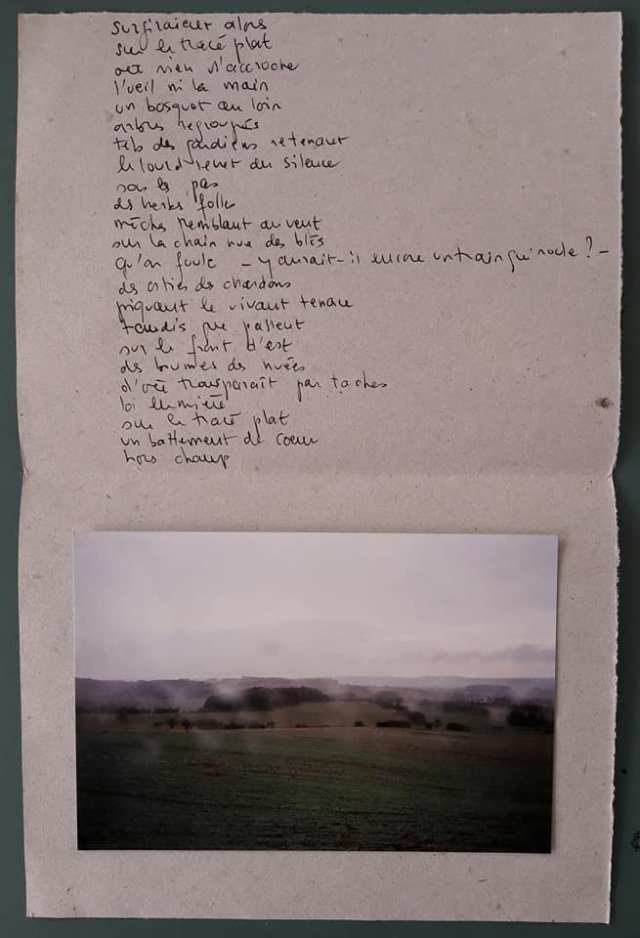 surgiraient alors
sur le tracé plat
où rien n'accroche
l'œil ni la main
un bosquet au loin
arbres regroupés
tels des gardiens retenant
le lourd secret du silence
sous les pas
des herbes folles
mèches tremblant au vent
sur la chair nue des blés
qu'on foule – y aurait-il encore un train qui roule ? –
des orties des chardons
piquant le vivant tenace
tandis que passent
sur le front d'est
des brumes des nuées
d'où transparaît par taches
la lumière
sur le tracé plat
un battement de cœur
hors champ